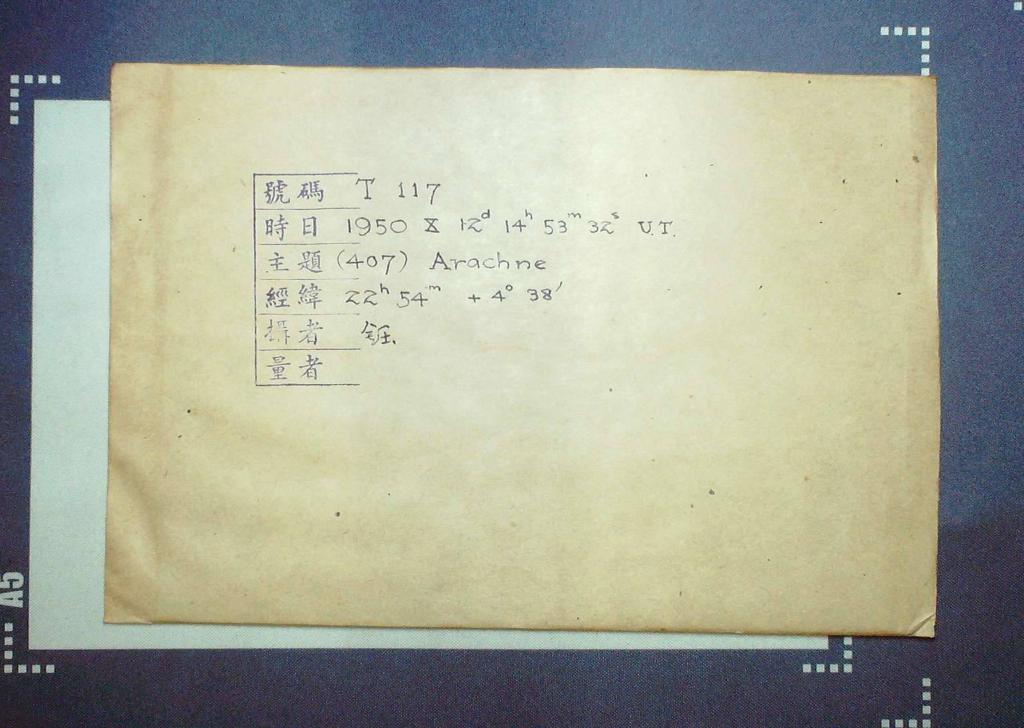 號碼 T 117
時日 1950 X 12ᵈ 14ʰ 53ᵐ 32ˢ U.T.
主題 (407) Arachne
經緯 22ʰ 54ᵐ + 4° 38′
攝者
量者
A5